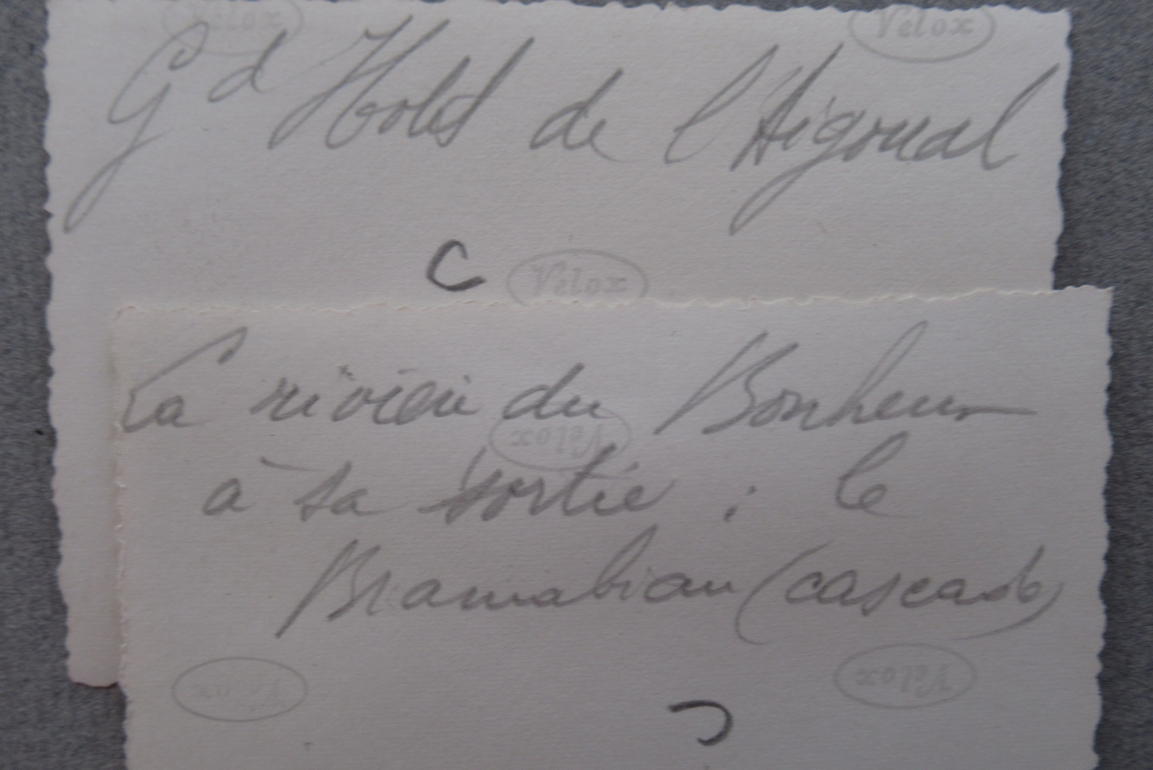 Velox Velox
Gd Hotel de l'Aigoual
C Velox
La rivière du Bonheur
Velox
à sa sortie : le
Bramabiau (cascade)
Velox Velox
C